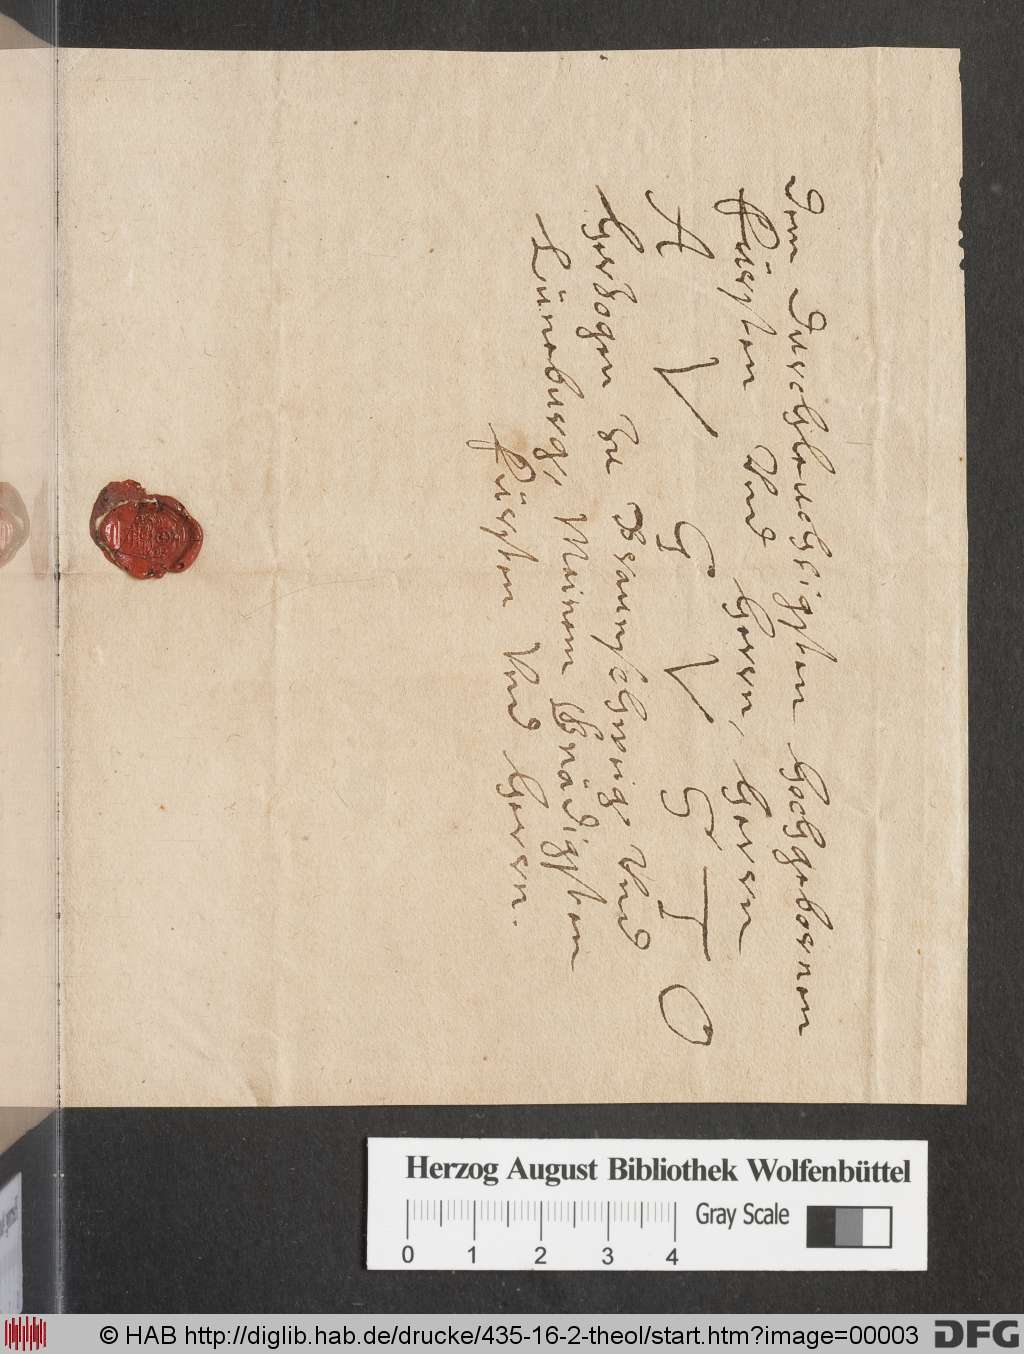 Dem Durchleuchtigsten Hochgebornen
Fürsten Und Herrn, Herrn
A V G V S T O
Herzogen zu Braunschweig Und
Lüneburg, Meinem Gnädigsten
Fürsten Und Herrn.
Herzog August Bibliothek Wolfenbüttel
Gray Scale
0 1 2 3 4
© HAB http://diglib.hab.de/drucke/435-16-2-theol/start.htm?image=00003
DFG